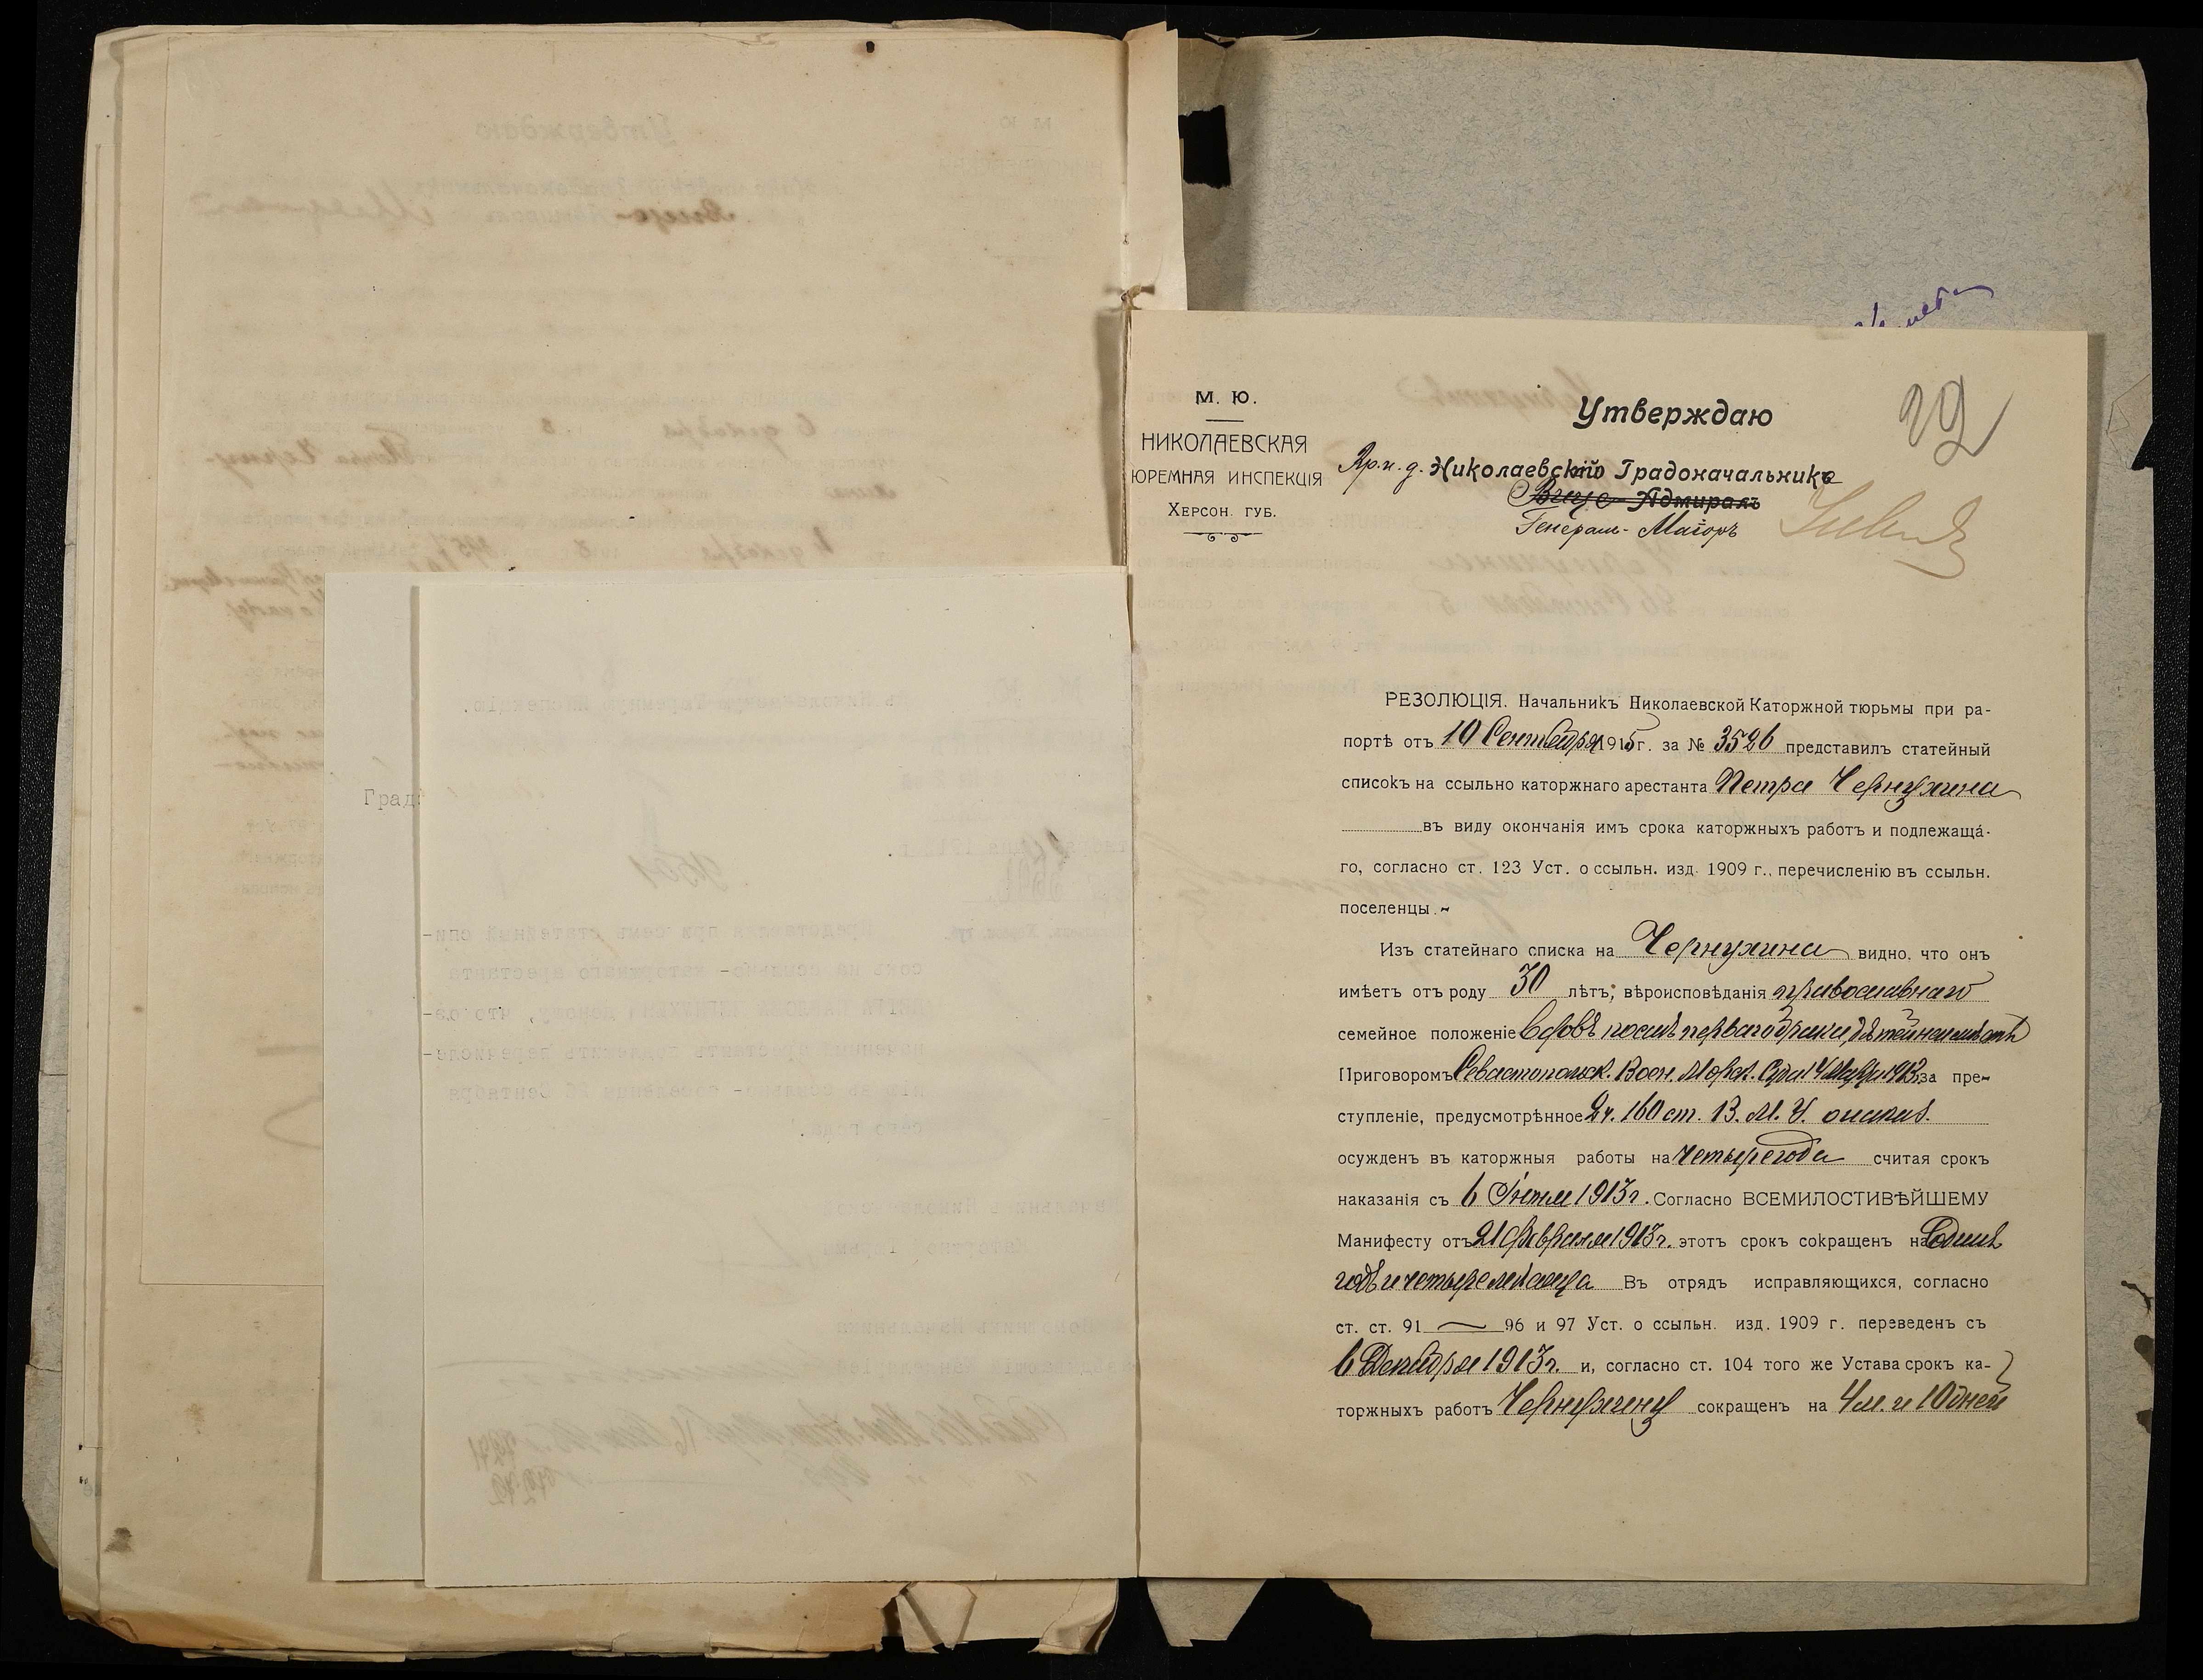 М. Ю.
НИКОЛАЕВСКАЯ
ЮРЕМНАЯ ИНСПЕКЦІЯ
ХЕРСОН. ГУБ.
Утверждаю
29
Вр. и. д. Николаевскій Градоначальникъ
Вице-Адмиралъ
Генералъ-Маіоръ
РЕЗОЛЮЦІЯ. Начальникъ Николаевской Каторжной тюрьмы при ра-
портѣ отъ 10 Сентября 1915г. за № 3526 представилъ статейный
списокъ на ссыльно каторжнаго арестанта Петра Чернухина
въ виду окончанія имъ срока каторжныхъ работъ и подлежаща-
го, согласно ст. 123 Уст. о ссыльн. изд. 1909 г., перечисленію въ ссыльн.
поселенцы.
Изъ статейнаго списка на Чернухина видно, что онъ
имѣетъ отъ роду 30 лѣтъ; вѣроисповѣданія православнаго
семейное положеніе вдовъ послѣ перваго брака, дѣтей не имѣетъ
Приговоромъ Севастопольск. Воен. Морск. Суда 14 1913г. за пре-
ступленіе, предусмотрѣнное 2 ч. 160 ст. В. М. У. о наказ.
осужденъ въ каторжныя работы на четыре года считая срокъ
наказанія съ 6 Іюня 1913г. Согласно ВСЕМИЛОСТИВѢЙШЕМУ
Манифесту отъ 21 февраля 1913г. этотъ срокъ сокращенъ на Одинъ
годъ и четыре мѣсяца Въ отрядъ исправляющихся, согласно
ст. ст. 91 — 96 и 97 Уст. о ссыльн. изд. 1909 г. переведенъ съ
6 Декабря 1913г. и, согласно ст. 104 того же Устава срокъ ка-
торжныхъ работъ Чернухину сокращенъ на 4 м. и 10 дней
Град